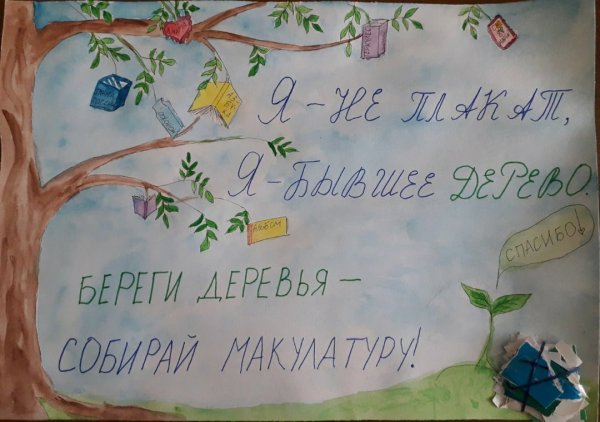 Я - НЕ ПЛАКАТ,
Я - БЫВШЕЕ ДЕРЕВО.
АЛЬБОМ
СПАСИБО!
БЕРЕГИ ДЕРЕВЬЯ —
СОБИРАЙ МАКУЛАТУРУ!